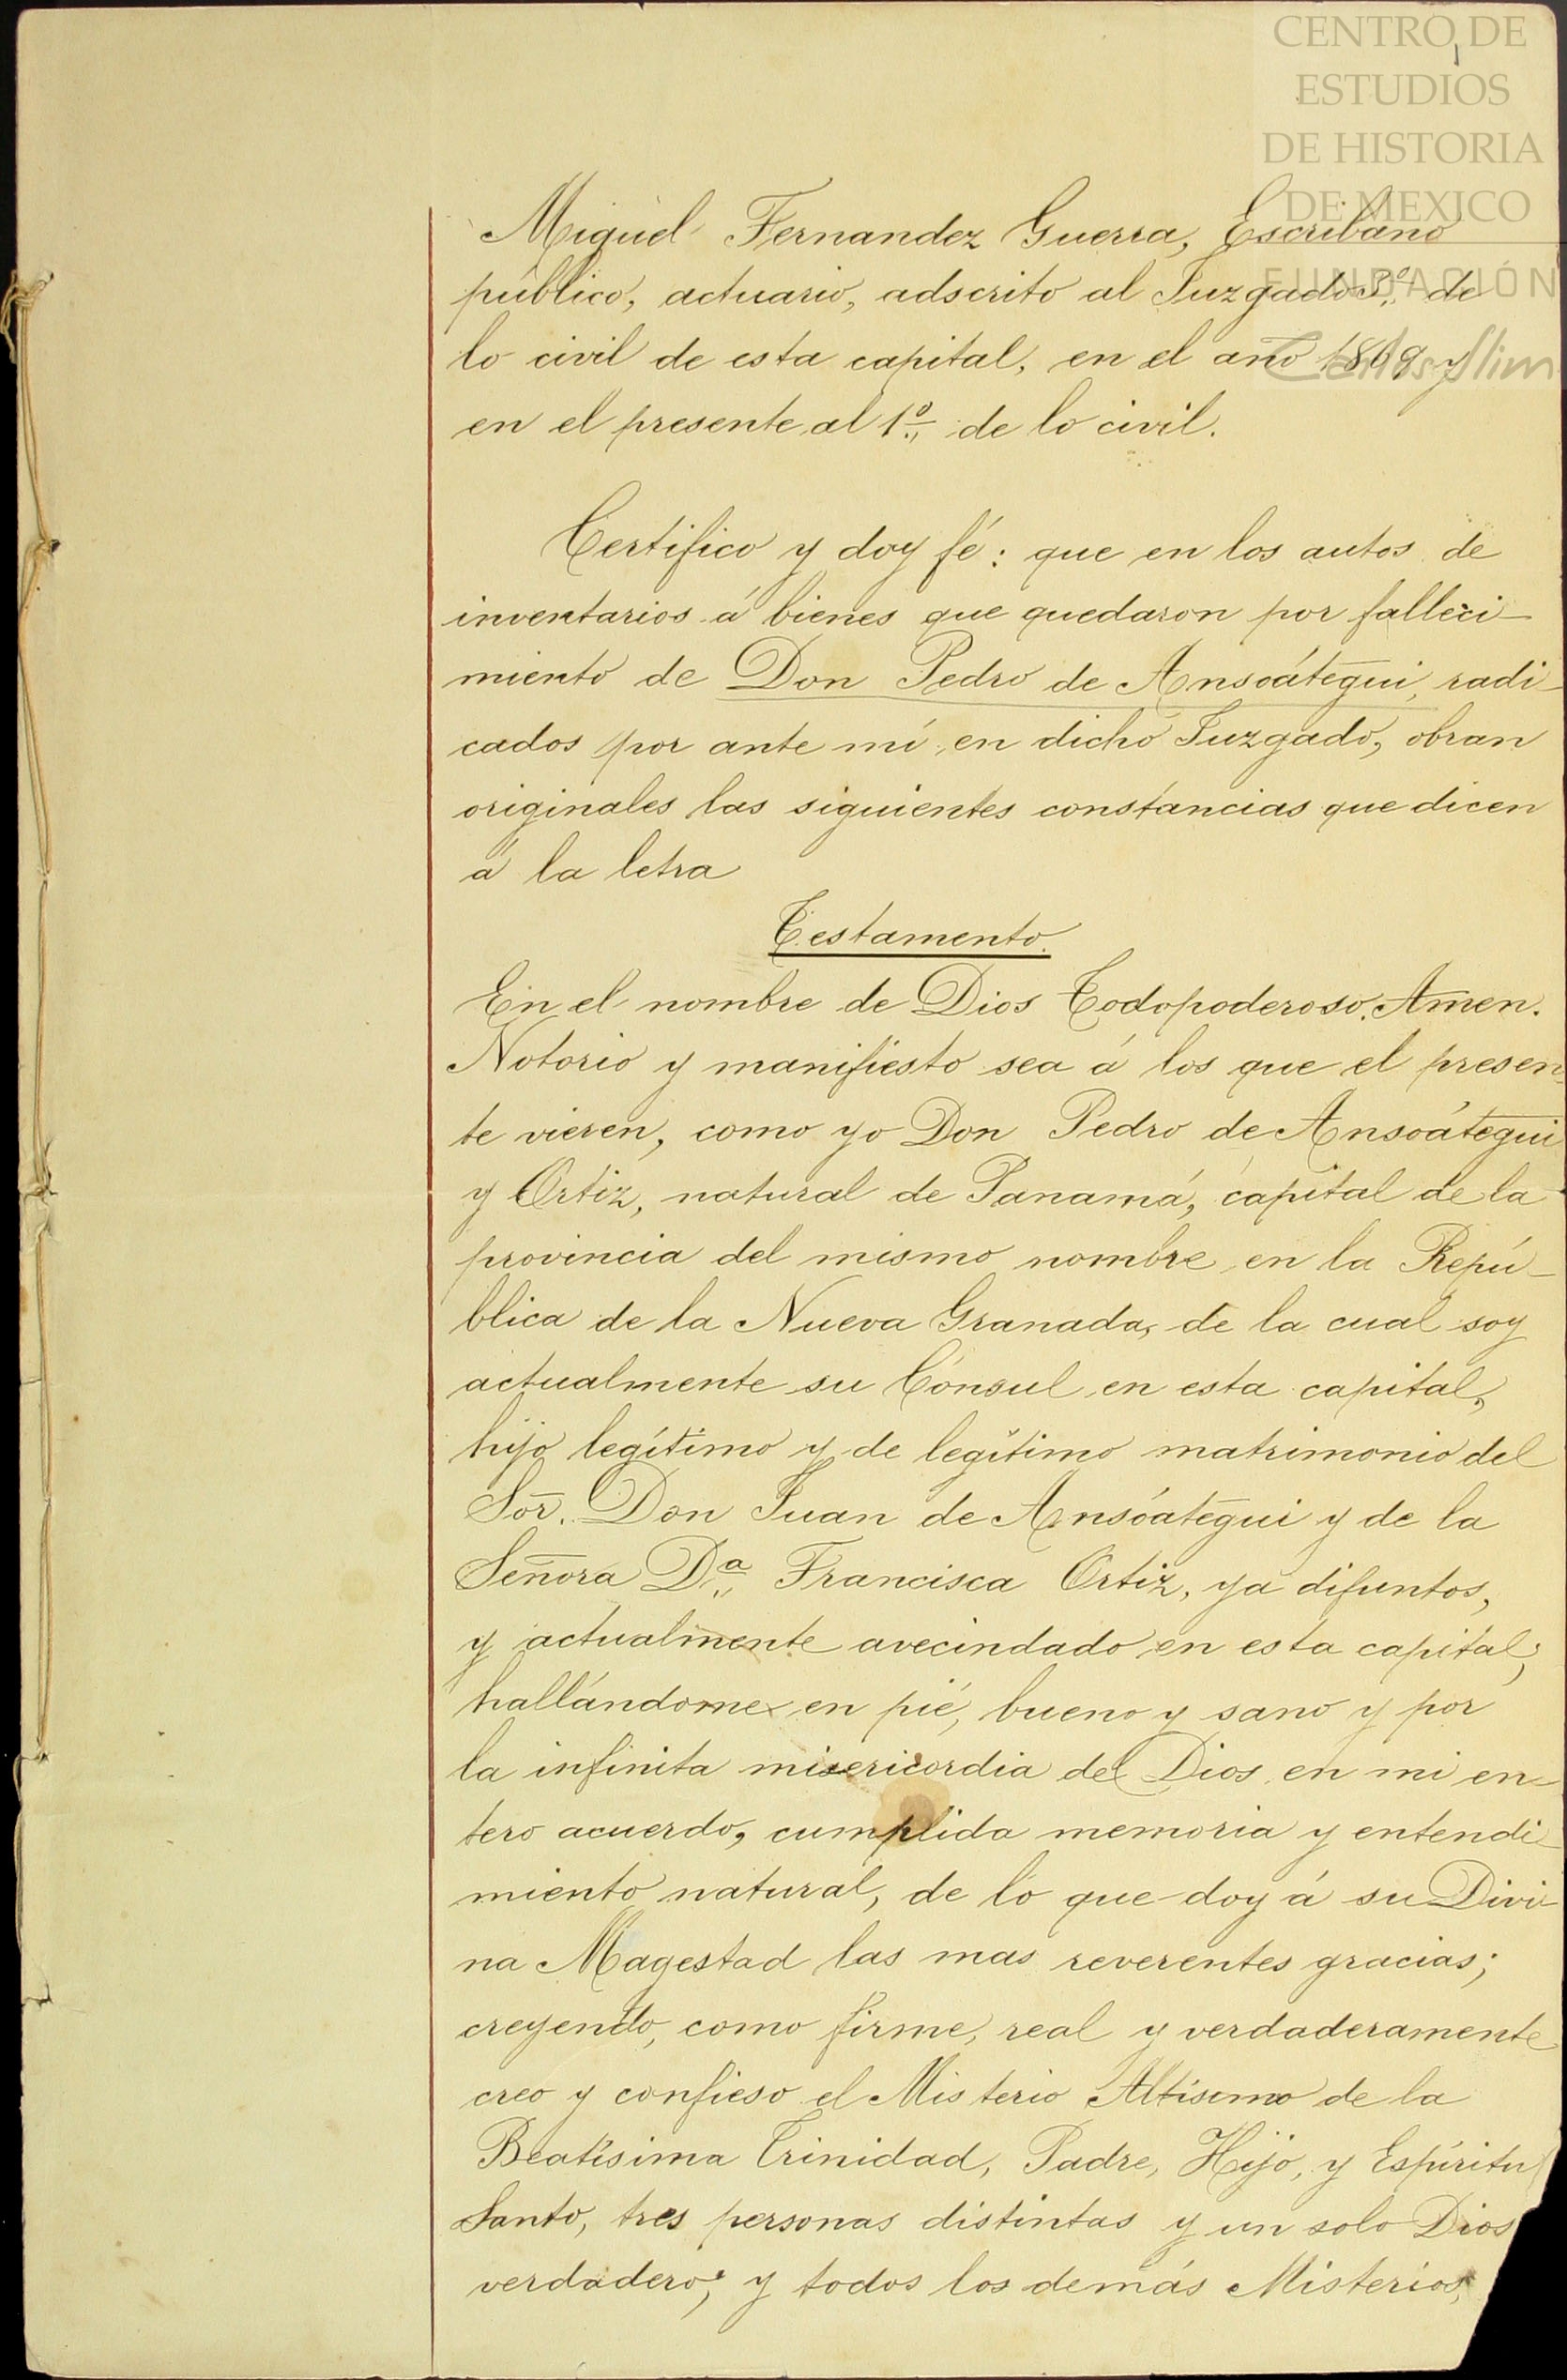 CENTRO DE
ESTUDIOS
DE HISTORIA
DE MEXICO
FUNDACIÓN
Carlos Slim
Miguel Fernandez Guerra, Escribano
público, actuario, adscrito al Juzgado de
lo civil de esta capital, en el año 1869 y
en el presente al 1º de lo civil.
Certifico y doy fé: que en los autos de
inventarios á bienes que quedaron por falleci-
miento de Don Pedro de Ansoátegui, radi-
cados por ante mí en dicho Juzgado, obran
originales las siguientes constancias que dicen
á la letra
Testamento.
En el nombre de Dios Todopoderoso. Amen.
Notorio y manifiesto sea á los que el presen
te vieren, como yo Don Pedro de Ansoátegui
y Ortiz, natural de Panamá, capital de la
provincia del mismo nombre en la Repú-
blica de la Nueva Granada, de la cual soy
actualmente su Cónsul en esta capital,
hijo legítimo y de legítimo matrimonio del
Sor. Don Juan de Ansoátegui y de la
Señora Dª Francisca Ortiz, ya difuntos,
y actualmente avecindado en esta capital;
hallándome en pié, bueno y sano y por
la infinita misericordia de Dios en mi en-
tero acuerdo, cumplida memoria y entendi-
miento natural, de lo que doy á su Divi-
na Magestad las mas reverentes gracias;
creyendo, como firme, real y verdaderamente
creo y confieso el Misterio Altísimo de la
Beatísima Trinidad, Padre, Hijo, y Espíritu
Santo, tres personas distintas y un solo Dios
verdadero; y todos los demás Misterios,